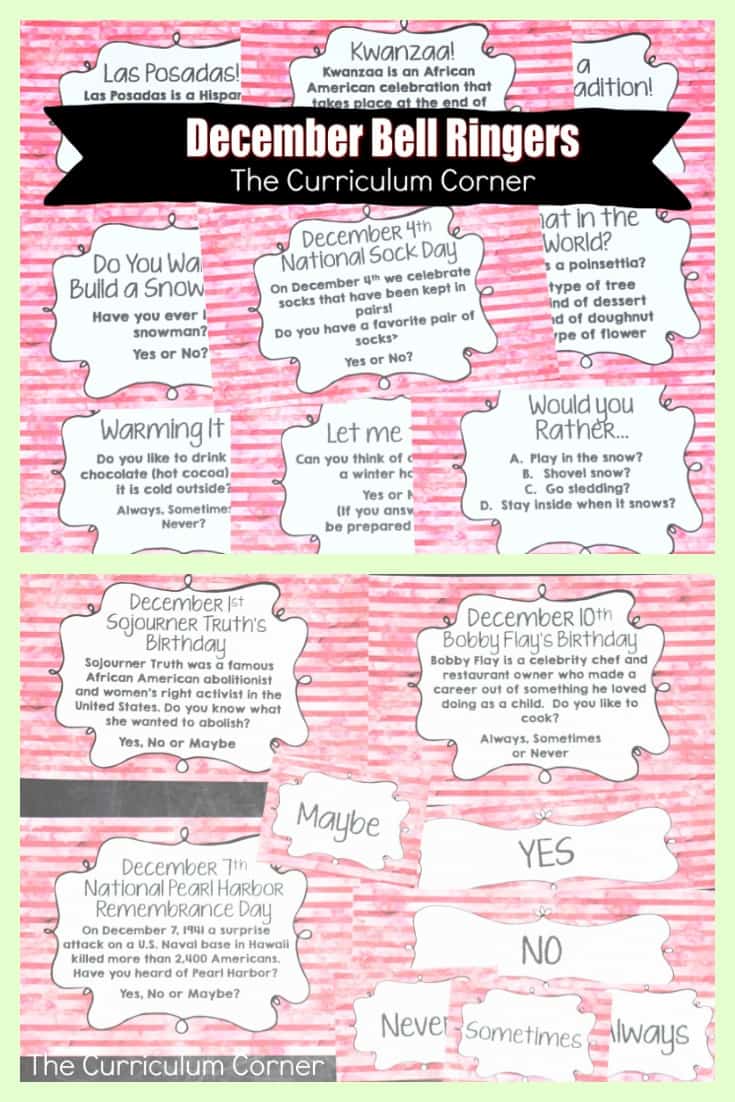 Las Posadas!
Las Posadas is a Hispar
Kwanzaa!
Kwanzaa is an African
American celebration that
takes place at the end of
a
adition!
December Bell Ringers
The Curriculum Corner
Do You Wa
Build a Snow
Have you ever
snowman?
Yes or No?
December 4th
National Sock Day
On December 4th we celebrate
socks that have been kept in
pairs!
Do you have a favorite pair of
socks>
Yes or No?
at in the
World?
s a poinsettia?
type of tree
nd of dessert
d of doughnut
pe of flower
Warming It
Do you like to drink
chocolate (hot cocoa)
it is cold outside?
Always, Sometime
Never?
Let me
Can you think of
a winter ho
Yes or
(If you answ
be prepared
Would you
Rather...
A. Play in the snow?
B. Shovel snow?
C. Go sledding?
D. Stay inside when it snows?
December 1st
Sojourner Truth's
Birthday
Sojourner Truth was a famous
African American abolitionist
and women's right activist in the
United States. Do you know what
she wanted to abolish?
Yes, No or Maybe
December 10th
Bobby Flay's Birthday
Bobby Flay is a celebrity chef and
restaurant owner who made a
career out of something he loved
doing as a child. Do you like to
cook?
Always, Sometimes
or Never
Maybe
YES
December 7th
National Pearl Harbor
Remembrance Day
On December 7, 1941 a surprise
attack on a U.S. Naval base in Hawaii
killed more than 2,400 Americans.
Have you heard of Pearl Harbor?
Yes, No or Maybe?
NO
Never
Sometimes
Always
The Curriculum Corner